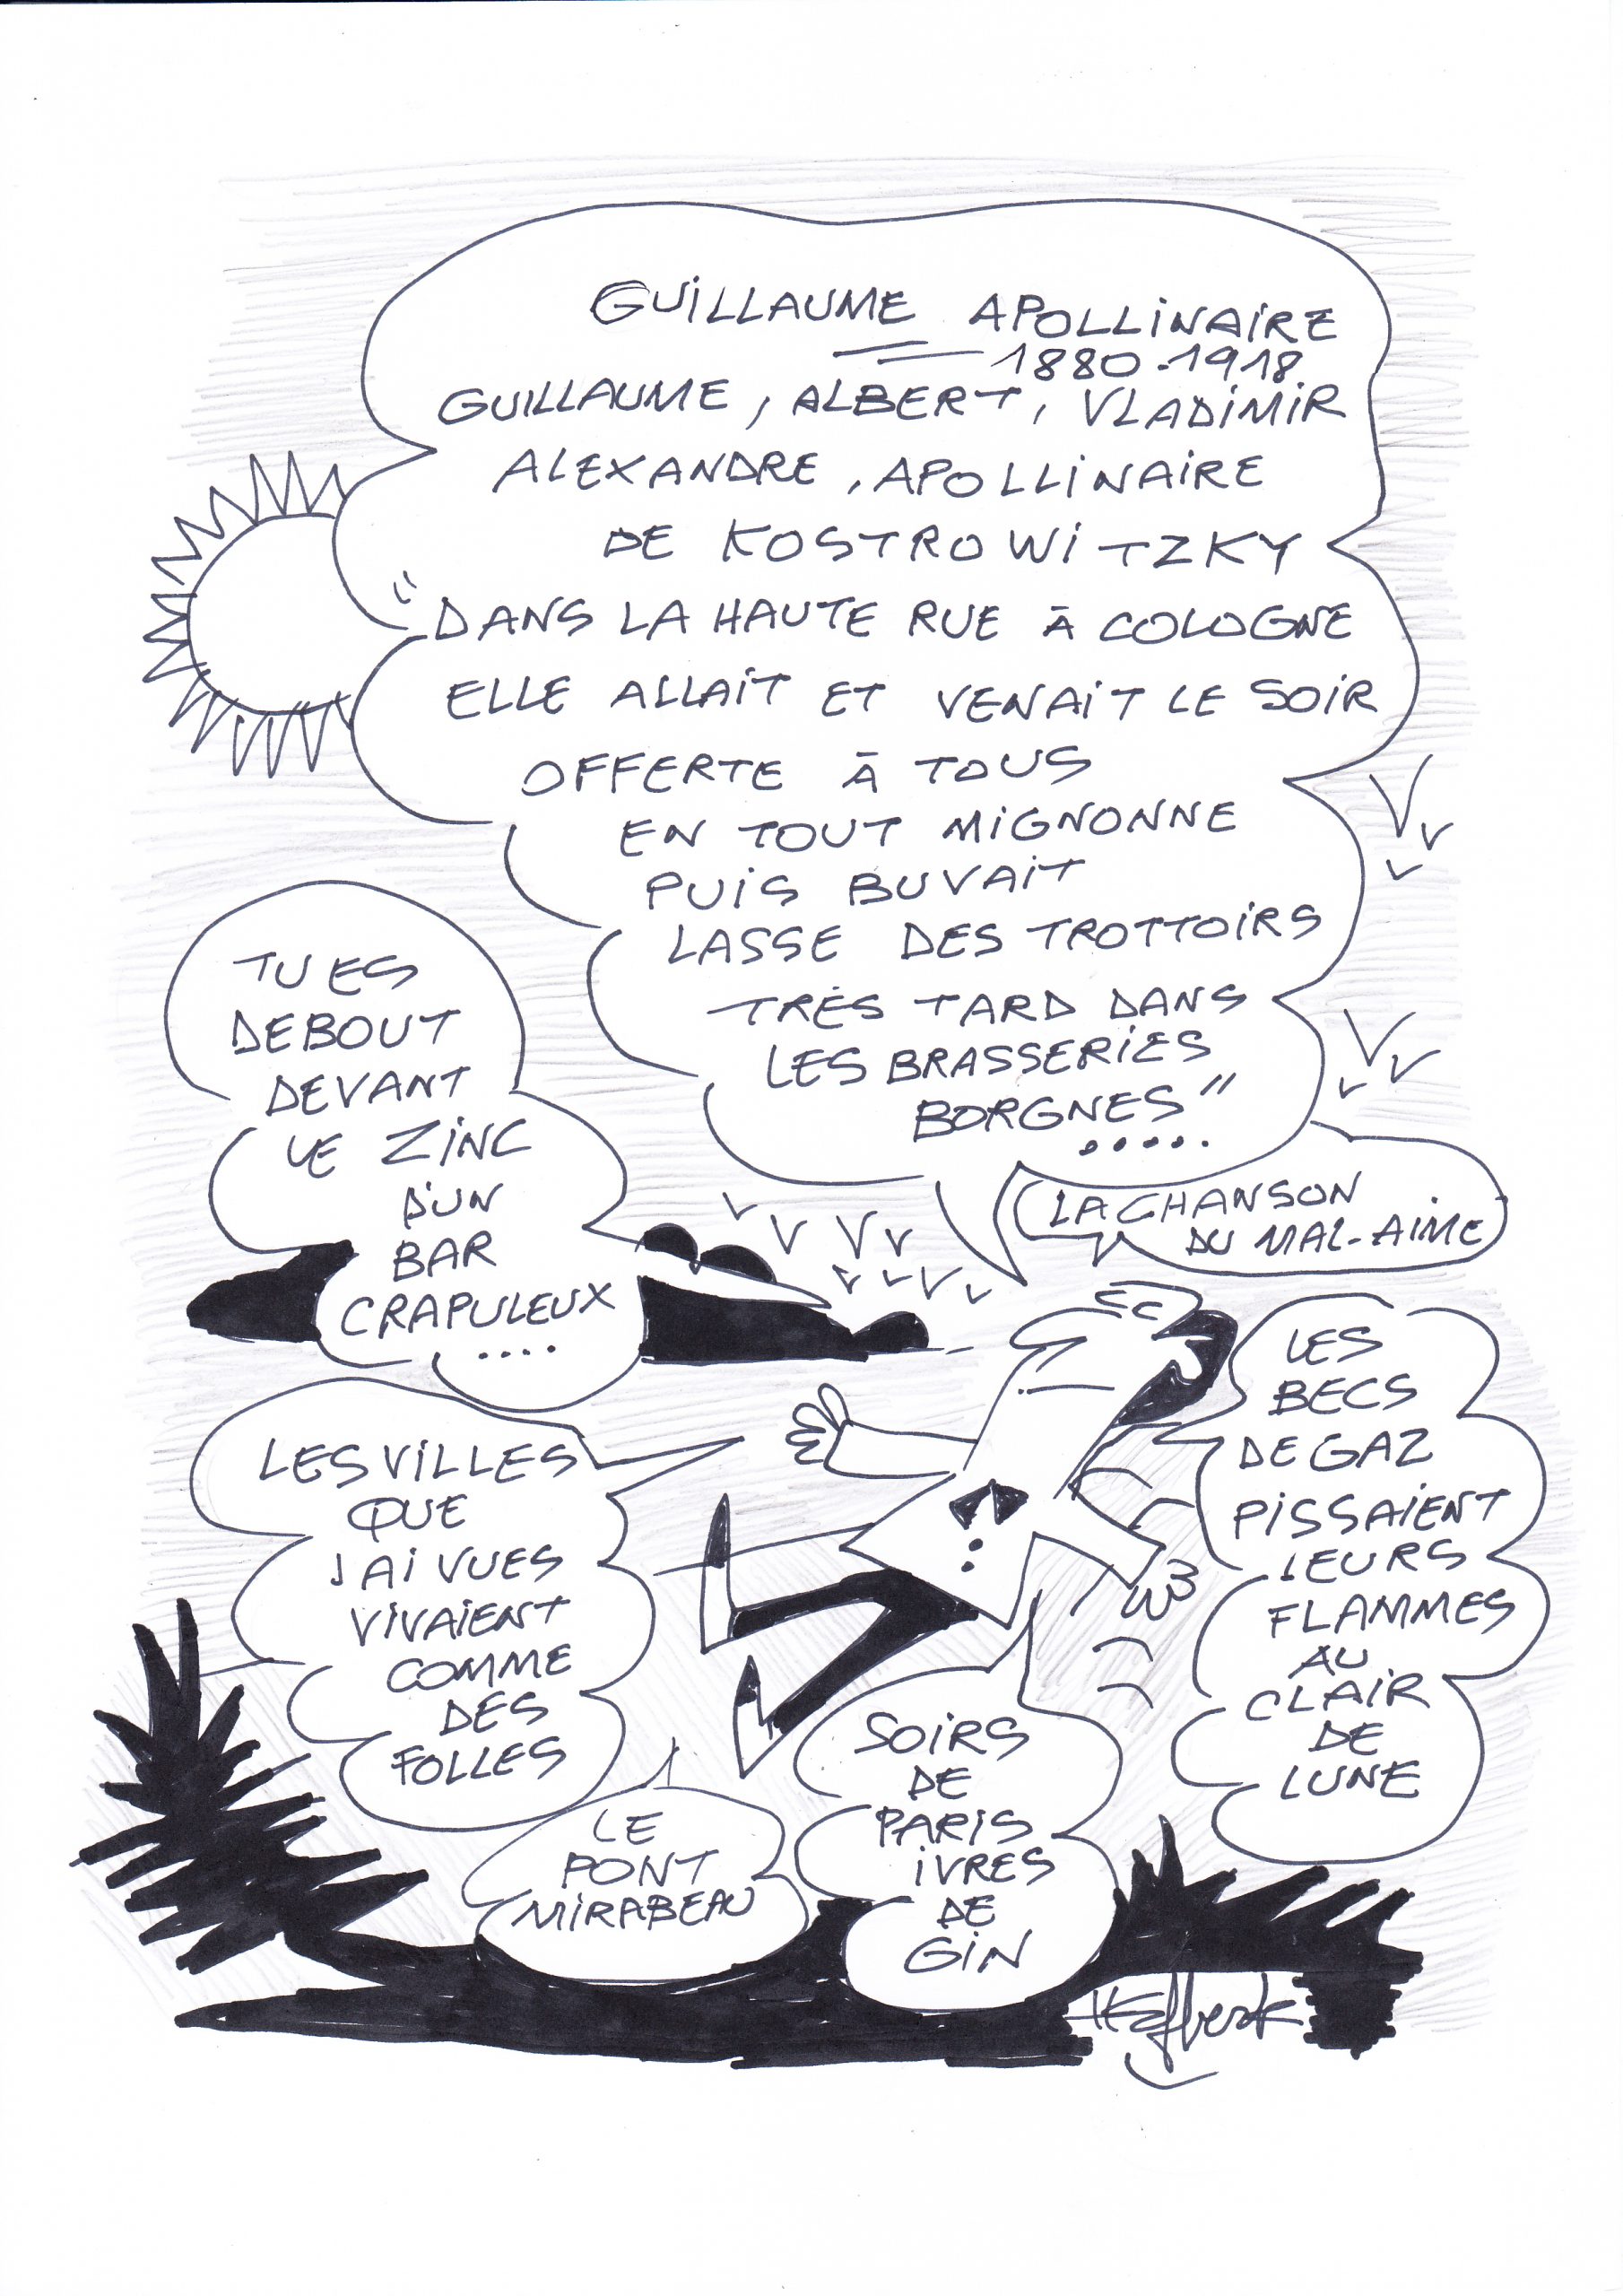 GUILLAUME APOLLINAIRE
1880-1918
GUILLAUME, ALBERT, VLADIMIR
ALEXANDRE, APOLLINAIRE
DE KOSTROWITZKY
"DANS LA HAUTE RUE À COLOGNE
ELLE ALLAIT ET VENAIT LE SOIR
OFFERTE À TOUS
EN TOUT MIGNONNE
PUIS BUVAIT
LASSE DES TROTTOIRS
TRÈS TARD DANS
LES BRASSERIES
BORGNES"
.....
LA CHANSON
DU MAL-AIMÉ
TU ES
DEBOUT
DEVANT
LE ZINC
D'UN
BAR
CRAPULEUX
....
LES VILLES
QUE
J'AI VUES
VIVAIENT
COMME
DES
FOLLES
LES
BECS
DE GAZ
PISSAIENT
LEURS
FLAMMES
AU
CLAIR
DE
LUNE
LE
PONT
MIRABEAU
SOIRS
DE
PARIS
IVRES
DE
GIN